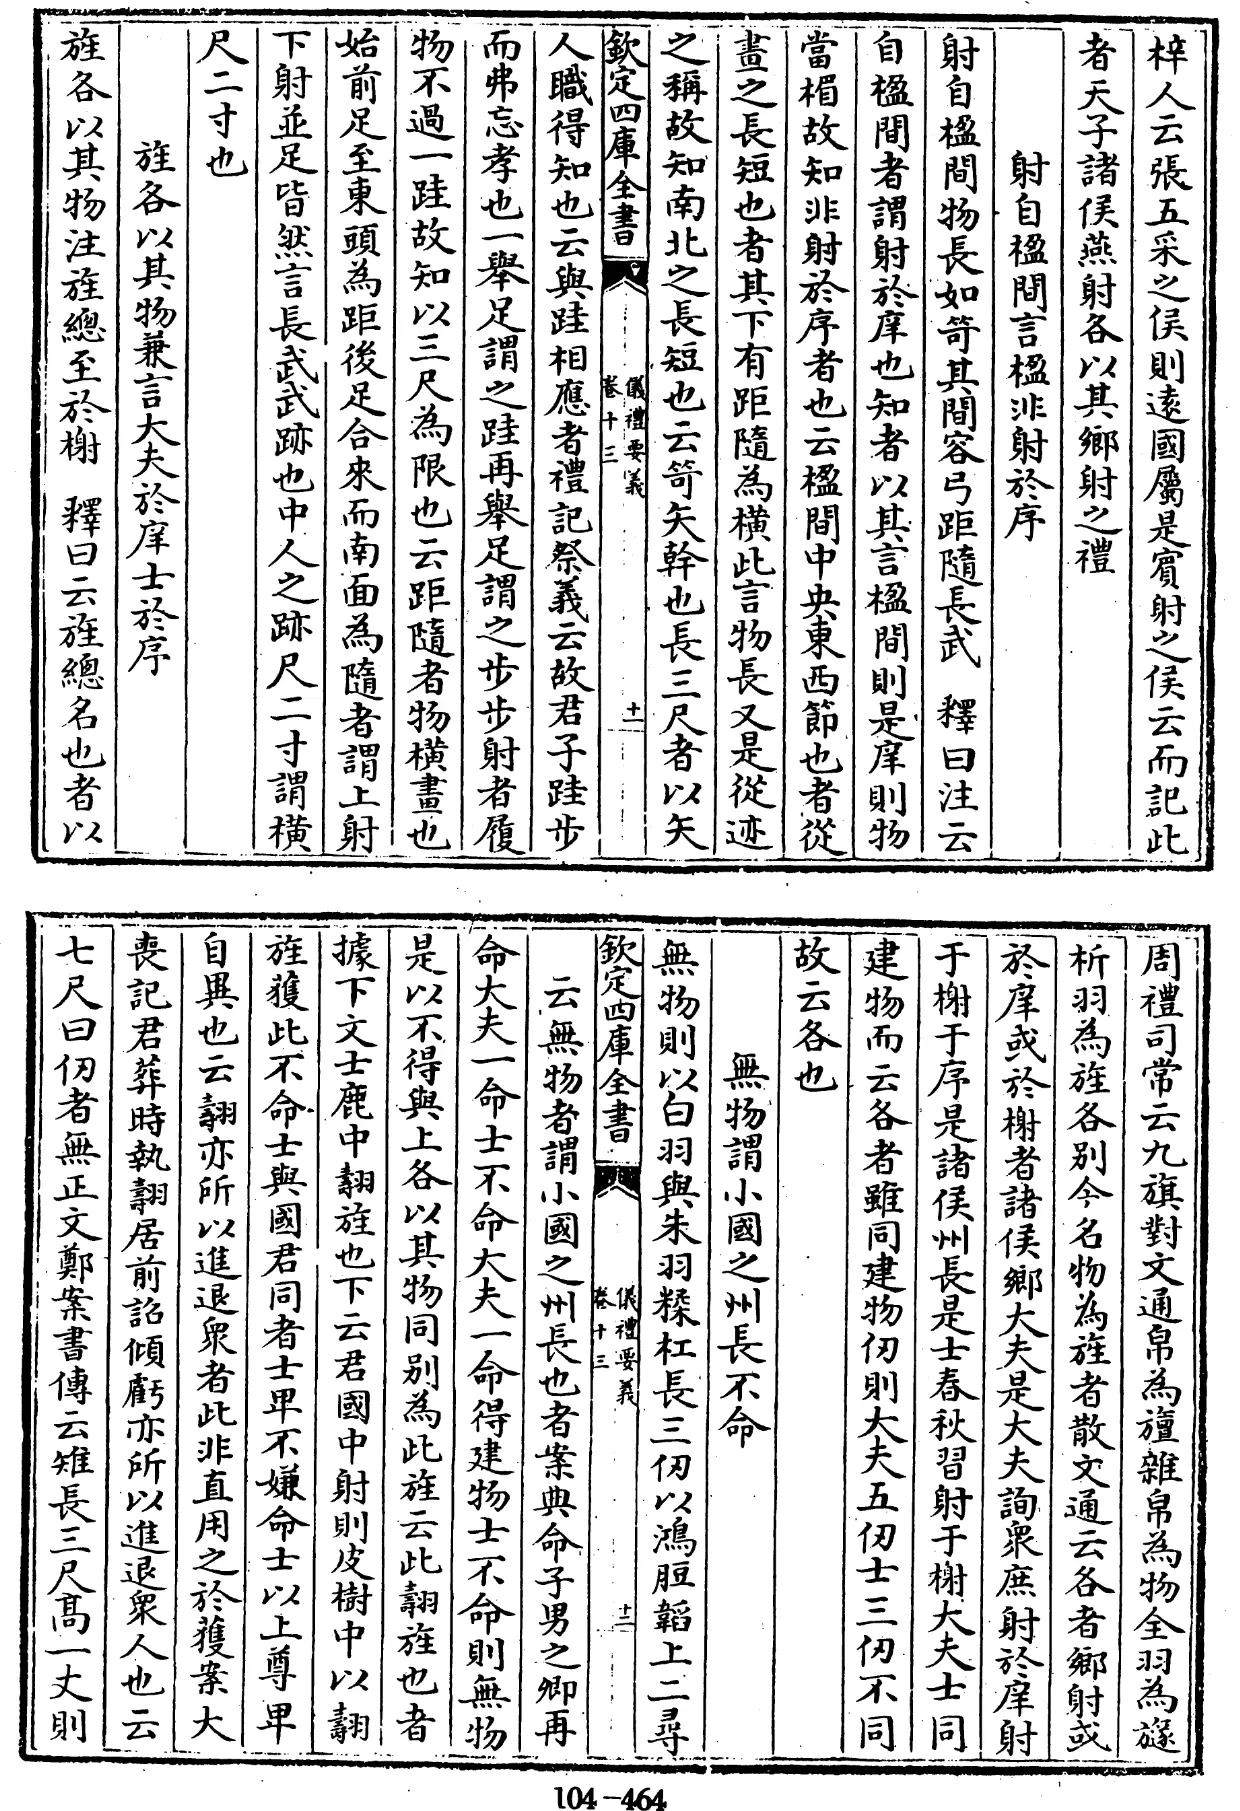 梓人云張五采之侯則遠國屬是賓射之侯云而記此
者天子諸侯燕射各以其鄉射之禮
射自楹間言楹非射於序
射自楹間物長如笴其間容弓距隨長武　釋曰注云
自楹間者謂射於庠也知者以其言楹間則是庠則物
當楣故知非射於序者也云楹間中央東西節也者從
畫之長短也者其下有距隨為橫此言物長又是從迹
之稱故知南北之長短也云笴矢幹也長三尺者以矢
欽定四庫全書
儀禮要義
卷十三
十一
人職得知也云與跬相應者禮記祭義云故君子跬步
而弗忘孝也一舉足謂之跬再舉足謂之步步射者履
物不過一跬故知以三尺為限也云距隨者物橫畫也
始前足至東頭為距後足合來而南面為隨者謂上射
下射並足皆然言長武武跡也中人之跡尺二寸謂橫
尺二寸也
旌各以其物兼言大夫於庠士於序
旌各以其物注旌總至於榭　釋曰云旌總名也者以
周禮司常云九旗對文通帛為旜雜帛為物全羽為旞
析羽為旌各別今名物為旌者散文通云各者鄉射或
於庠或於榭者諸侯鄉大夫是大夫詢衆庶射於庠射
于榭于序是諸侯州長是士春秋習射于榭大夫士同
建物而云各者雖同建物仞則大夫五仞士三仞不同
故云各也
無物謂小國之州長不命
無物則以白羽與朱羽糅杠長三仞以鴻脰韜上二尋
欽定四庫全書
儀禮要義
卷十三
十二
云無物者謂小國之州長也者案典命子男之卿再
命大夫一命士不命大夫一命得建物士不命則無物
是以不得與上各以其物同別為此旌云此翿旌也者
據下文士鹿中翿旌也下云君國中射則皮樹中以翿
旌獲此不命士與國君同者士卑不嫌命士以上尊卑
自異也云翿亦所以進退衆者此非直用之於獲案大
喪記君葬時執翿居前詔傾虧亦所以進退衆人也云
七尺曰仞者無正文鄭案書傳云雉長三尺高一丈則
104-464